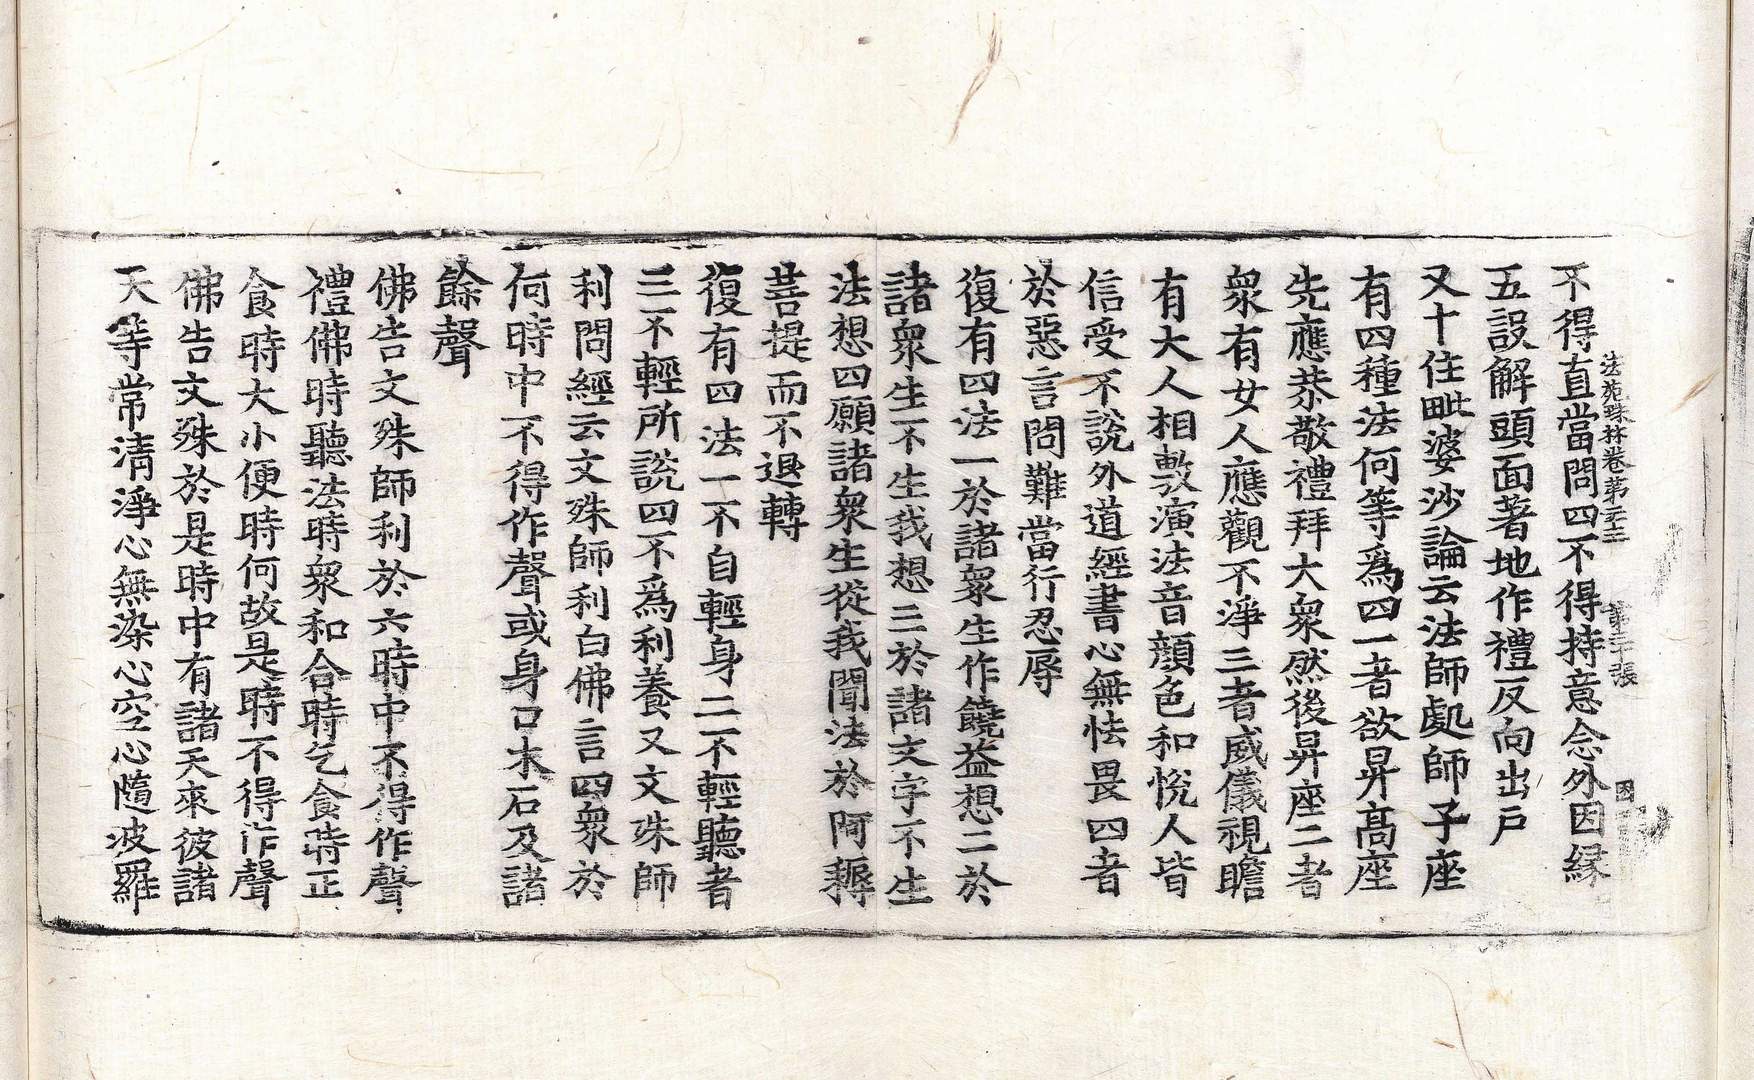 法苑珠林卷第二十三 第二十張 困
不得直當問四不得持意念外因縁
五設解頭面著地作禮反向出戶
又十住毗婆沙論云法師處師子座
有四種法何等爲四一者欲昇髙座
先應恭敬禮拜大衆然後昇座二者
衆有女人應觀不淨三者威儀視瞻
有大人相敷演法音顔色和悅人皆
信受不說外道經書心無怯畏四者
於惡言問難當行忍辱
復有四法一於諸衆生作饒益想二於
諸衆生不生我想三於諸文字不生
法想四願諸衆生從我聞法於阿耨
菩提而不退轉
復有四法一不自輕身二不輕聽者
三不輕所說四不爲利養又文殊師
利問經云文殊師利白佛言四衆於
何時中不得作聲或身口木石及諸
餘聲
佛告文殊師利於六時中不得作聲
禮佛時聽法時衆和合時乞食時正
食時大小便時何故是時不得作聲
佛告文殊於是時中有諸天來彼諸
天等常清淨心無染心空心隨波羅